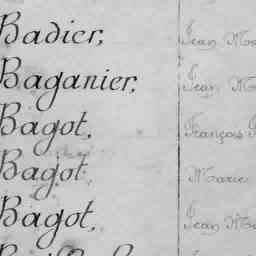 Badier, Jean
Baganier, Jean
Bagot, François
Bagot Marie
Bagot, Jean